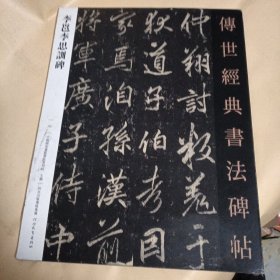 傳世經典書法碑帖
李邕李思訓碑
仲翔討叛羌于
狄道子伯考因
家焉洎孫漢前
將軍廣子侍中